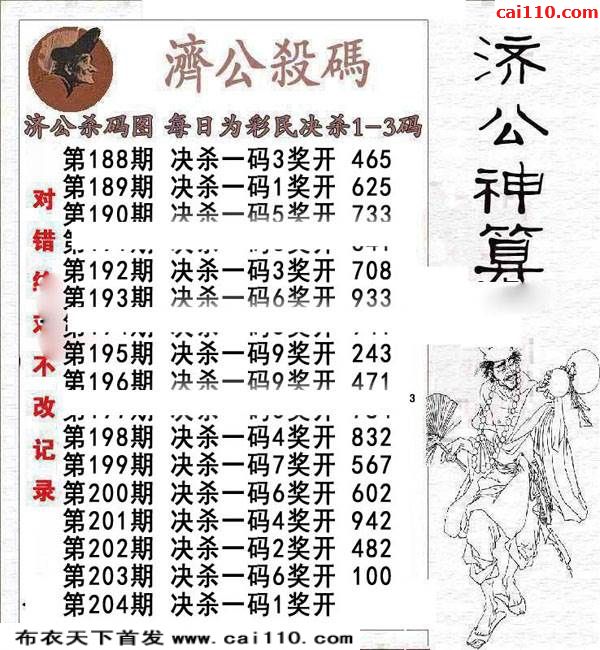 cai110.com
濟公殺碼
济公神算
济公杀码图 每日为彩民决杀1-3码
对错 不改记录
第188期 决杀一码3奖开 465
第189期 决杀一码1奖开 625
第190期 决杀一码5奖开 733
第192期 决杀一码3奖开 708
第193期 决杀一码6奖开 933
第195期 决杀一码9奖开 243
第196期 决杀一码9奖开 471
3
第198期 决杀一码4奖开 832
第199期 决杀一码7奖开 567
第200期 决杀一码6奖开 602
第201期 决杀一码4奖开 942
第202期 决杀一码2奖开 482
第203期 决杀一码6奖开 100
第204期 决杀一码1奖开
布衣天下首发 www.cai110.com